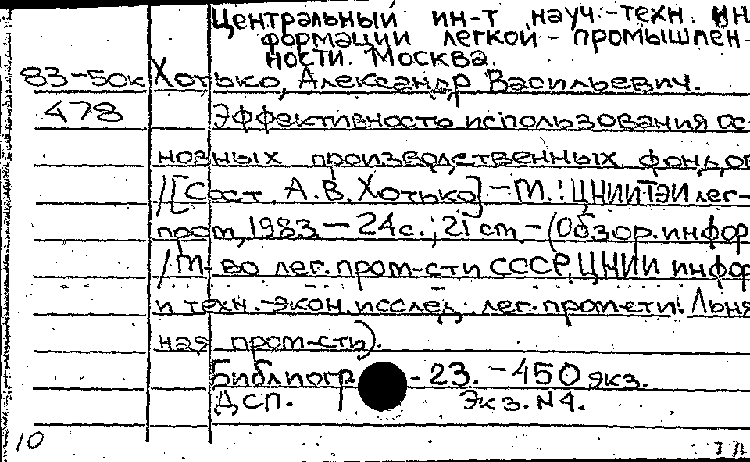 Центральный ин-т науч.-техн. ин
формации легкой - промышлен-
ности. Москва.
83-50к Хотько, Александр Васильевич.
478 Эффективность использования ос-
новных производственных фондов
/[Сост. А.В. Хотько] - М.: ЦНИИТЭИ лег-
пром, 1983. - 24 с.; 21 см. - (Обзор. инфор
/М-во лег. пром-сти СССР, ЦНИИ инфор
и техн.-экон. исслед. лег. пром-сти. Льня
ная пром-сть).
Библиогр - 23. - 450 экз.
ДСП. Экз. N4.
10